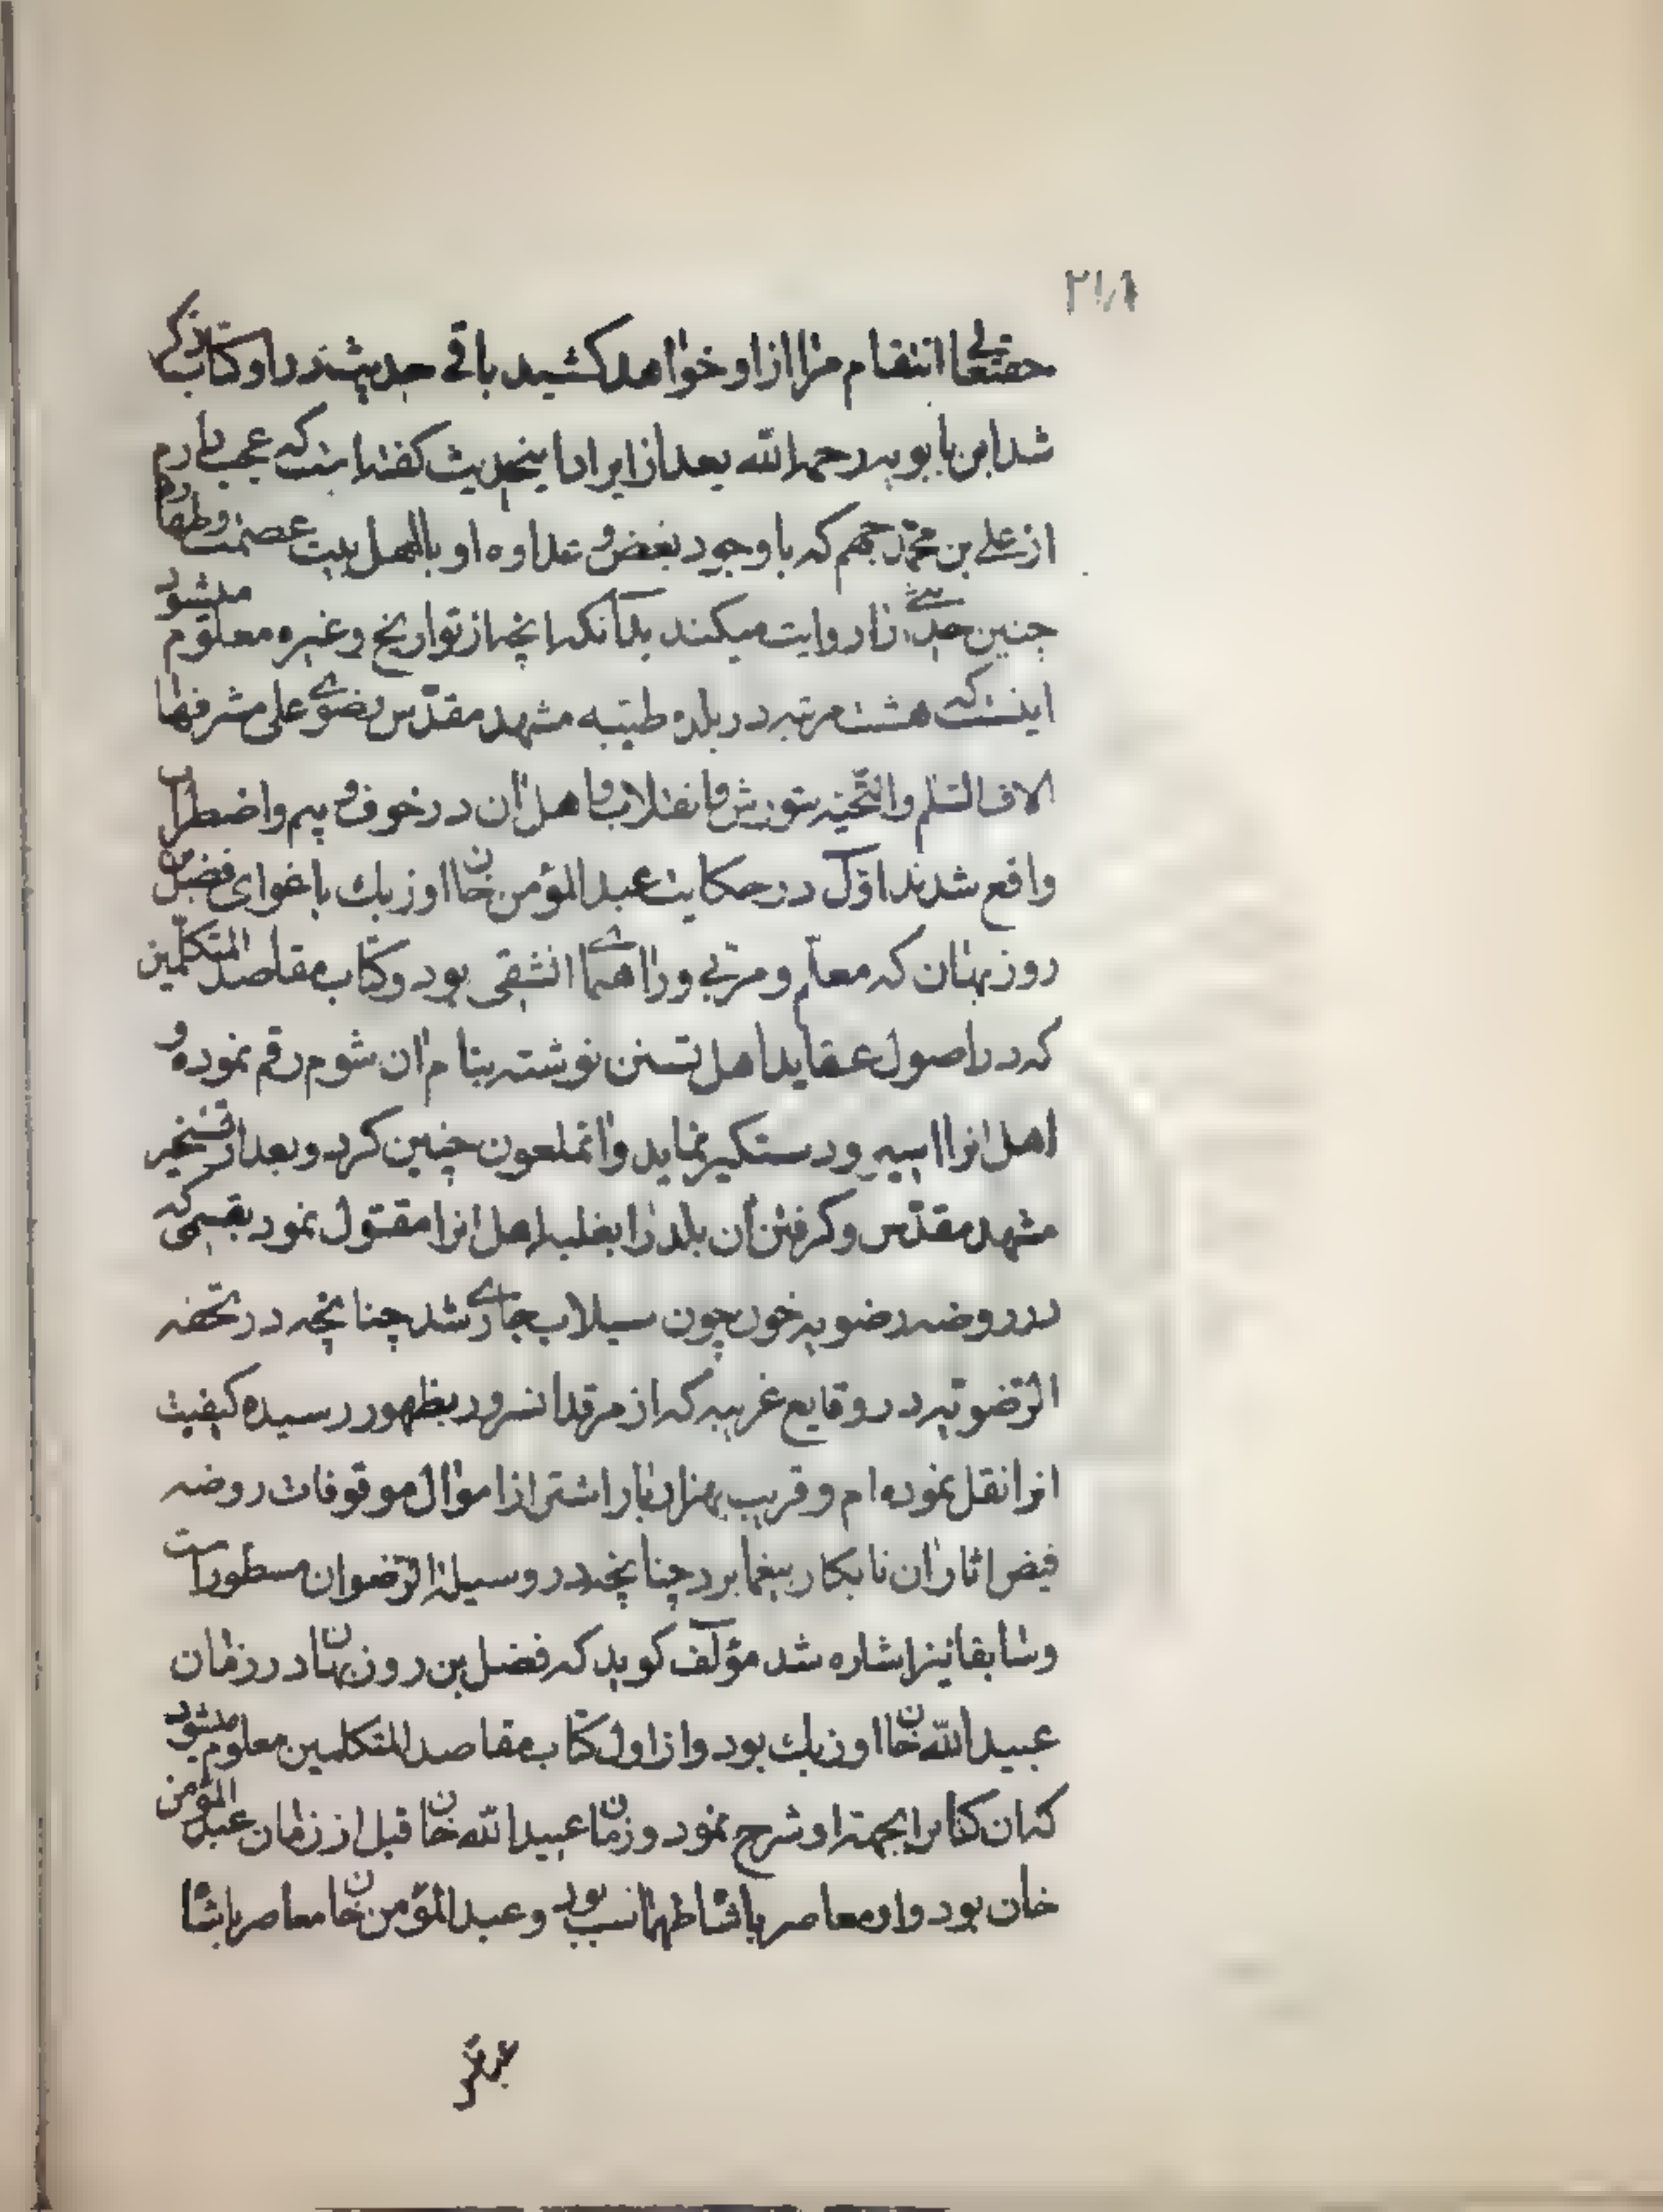 ۲۱۸
حقتعالی انتقام مرا از او خواهد کشید باقی حدیث در اول کتاب ذکر
شد ابن بابویه رحمه الله بعد از ایراد اینحدیث گفته است که عجب دارم
از علی بن محمد جهم که با وجود بغض و عداوه او با اهل بیت عصمت و طهارة
چنین حدیثی را روایت میکند بدآنکه انچه از تواریخ و غیره معلوم میشود
اینست که هشت مرتبه در بلده طیبه مشهد مقدّس رضوی علی مشرفها
الاف السّلم و التّحیّه شورش و انقلاب و اهل ان در خوف و بیم و اضطراب
واقع شدند اوّل در حکایت عبدالمؤمن خان اوزبك باغوای فضل بن
روزبهان که معلّم و مربّی ورا همای انشقی بود و کتاب مقاصد المتکلّمین
که در اصول عقاید اهل تسنن نوشته بنام ان شوم رقم نموده و
اهل انرا اسیر و دستکیر نماید و انملعون چنین کرد و بعد از تسخیر
مشهد مقدّس و کرفتن ان بلد را بغلبه اهل انرا مقتول نمود بقسمی که
در روضه رضویه خون چون سیلاب جاری شد چنانچه در تحفه
الرّضویّه در وقایع غریبه که از مرقد انسرور بظهور رسیده کیفیت
انرا نقل نموده ام و قریب بهزار بار اشتر از اموال موقوفات روضه
فیض اثار ان نابکار بیغما برد چنانچه در وسیلة الرّضوان مسطور است
و سابقا نیز اشاره شد مؤلّف کوید که فضل بن روزبهان در زمان
عبیدالله خان اوزبك بود و از اول کتاب مقاصد المتکلمین معلوم میشود
که ان کتابرا بجهته او شرح نمود و زمان عبیدالله خان قبل از زمان عبدالمؤمن
خان بود و او معاصر با شاطهماسب بود و عبدالمؤمن خان معاصر با شاا